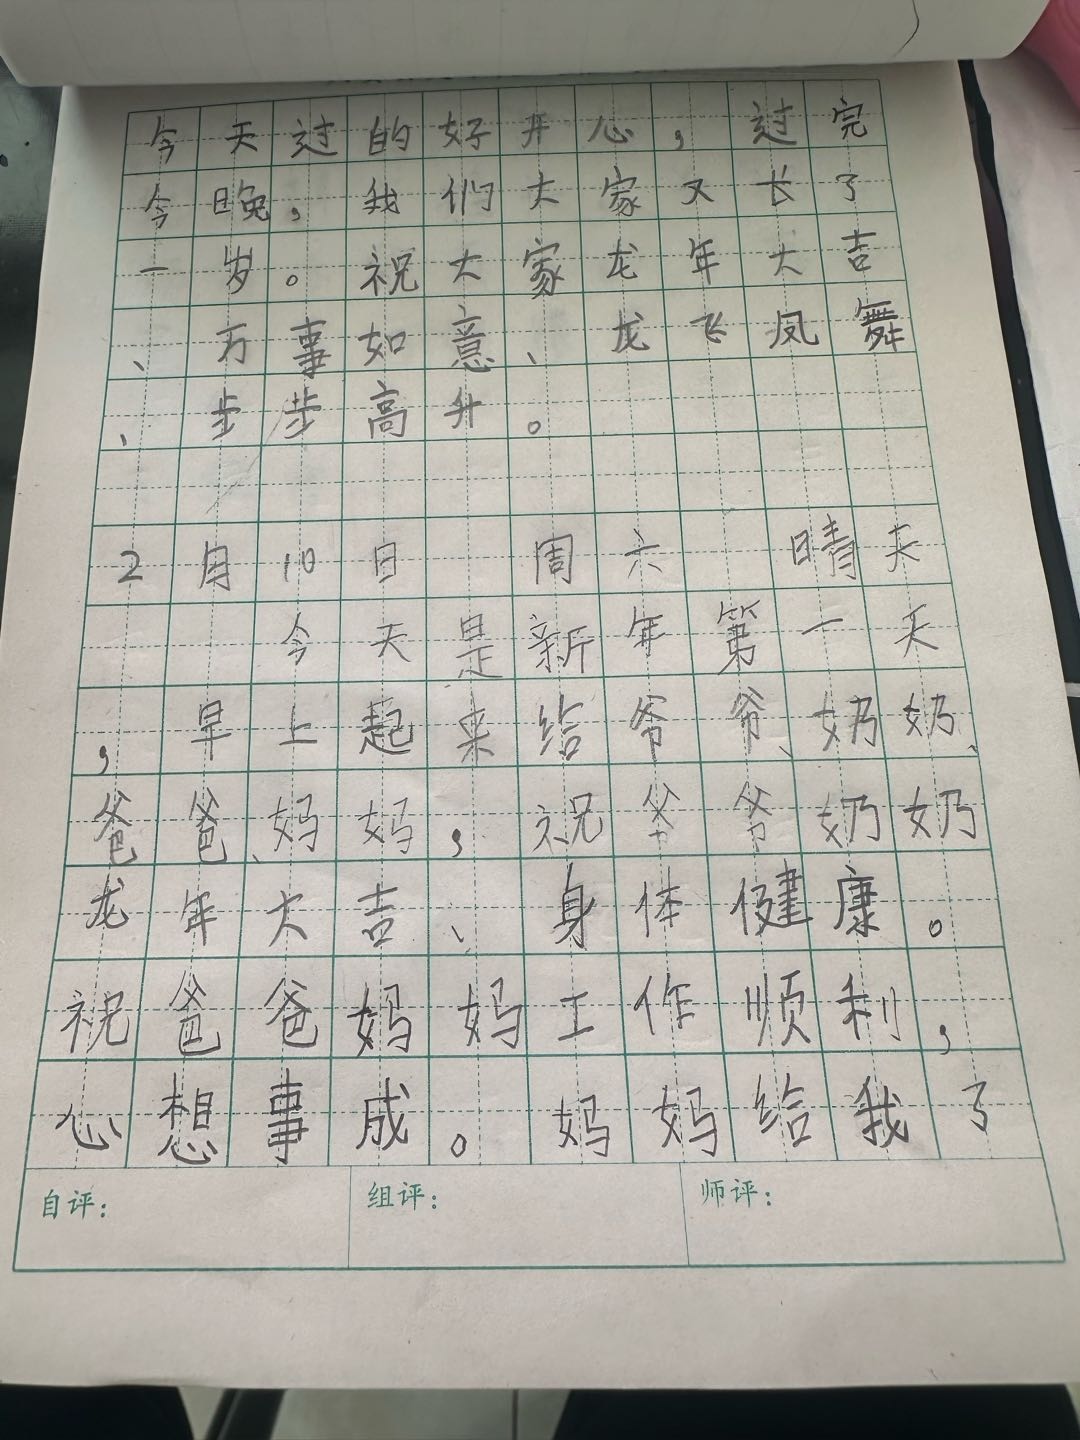 今天过的好开心，过完
今晚，我们大家又长了
一岁。祝大家龙年大吉
、万事如意、龙飞凤舞
、步步高升。
2月10日 周六 晴天
今天是新年第一天
，早上起来给爷爷、奶奶、
爸爸、妈妈，祝爷爷奶奶
龙年大吉、身体健康。
祝爸爸妈妈工作顺利，
心想事成。妈妈给我了
自评： 组评： 师评：